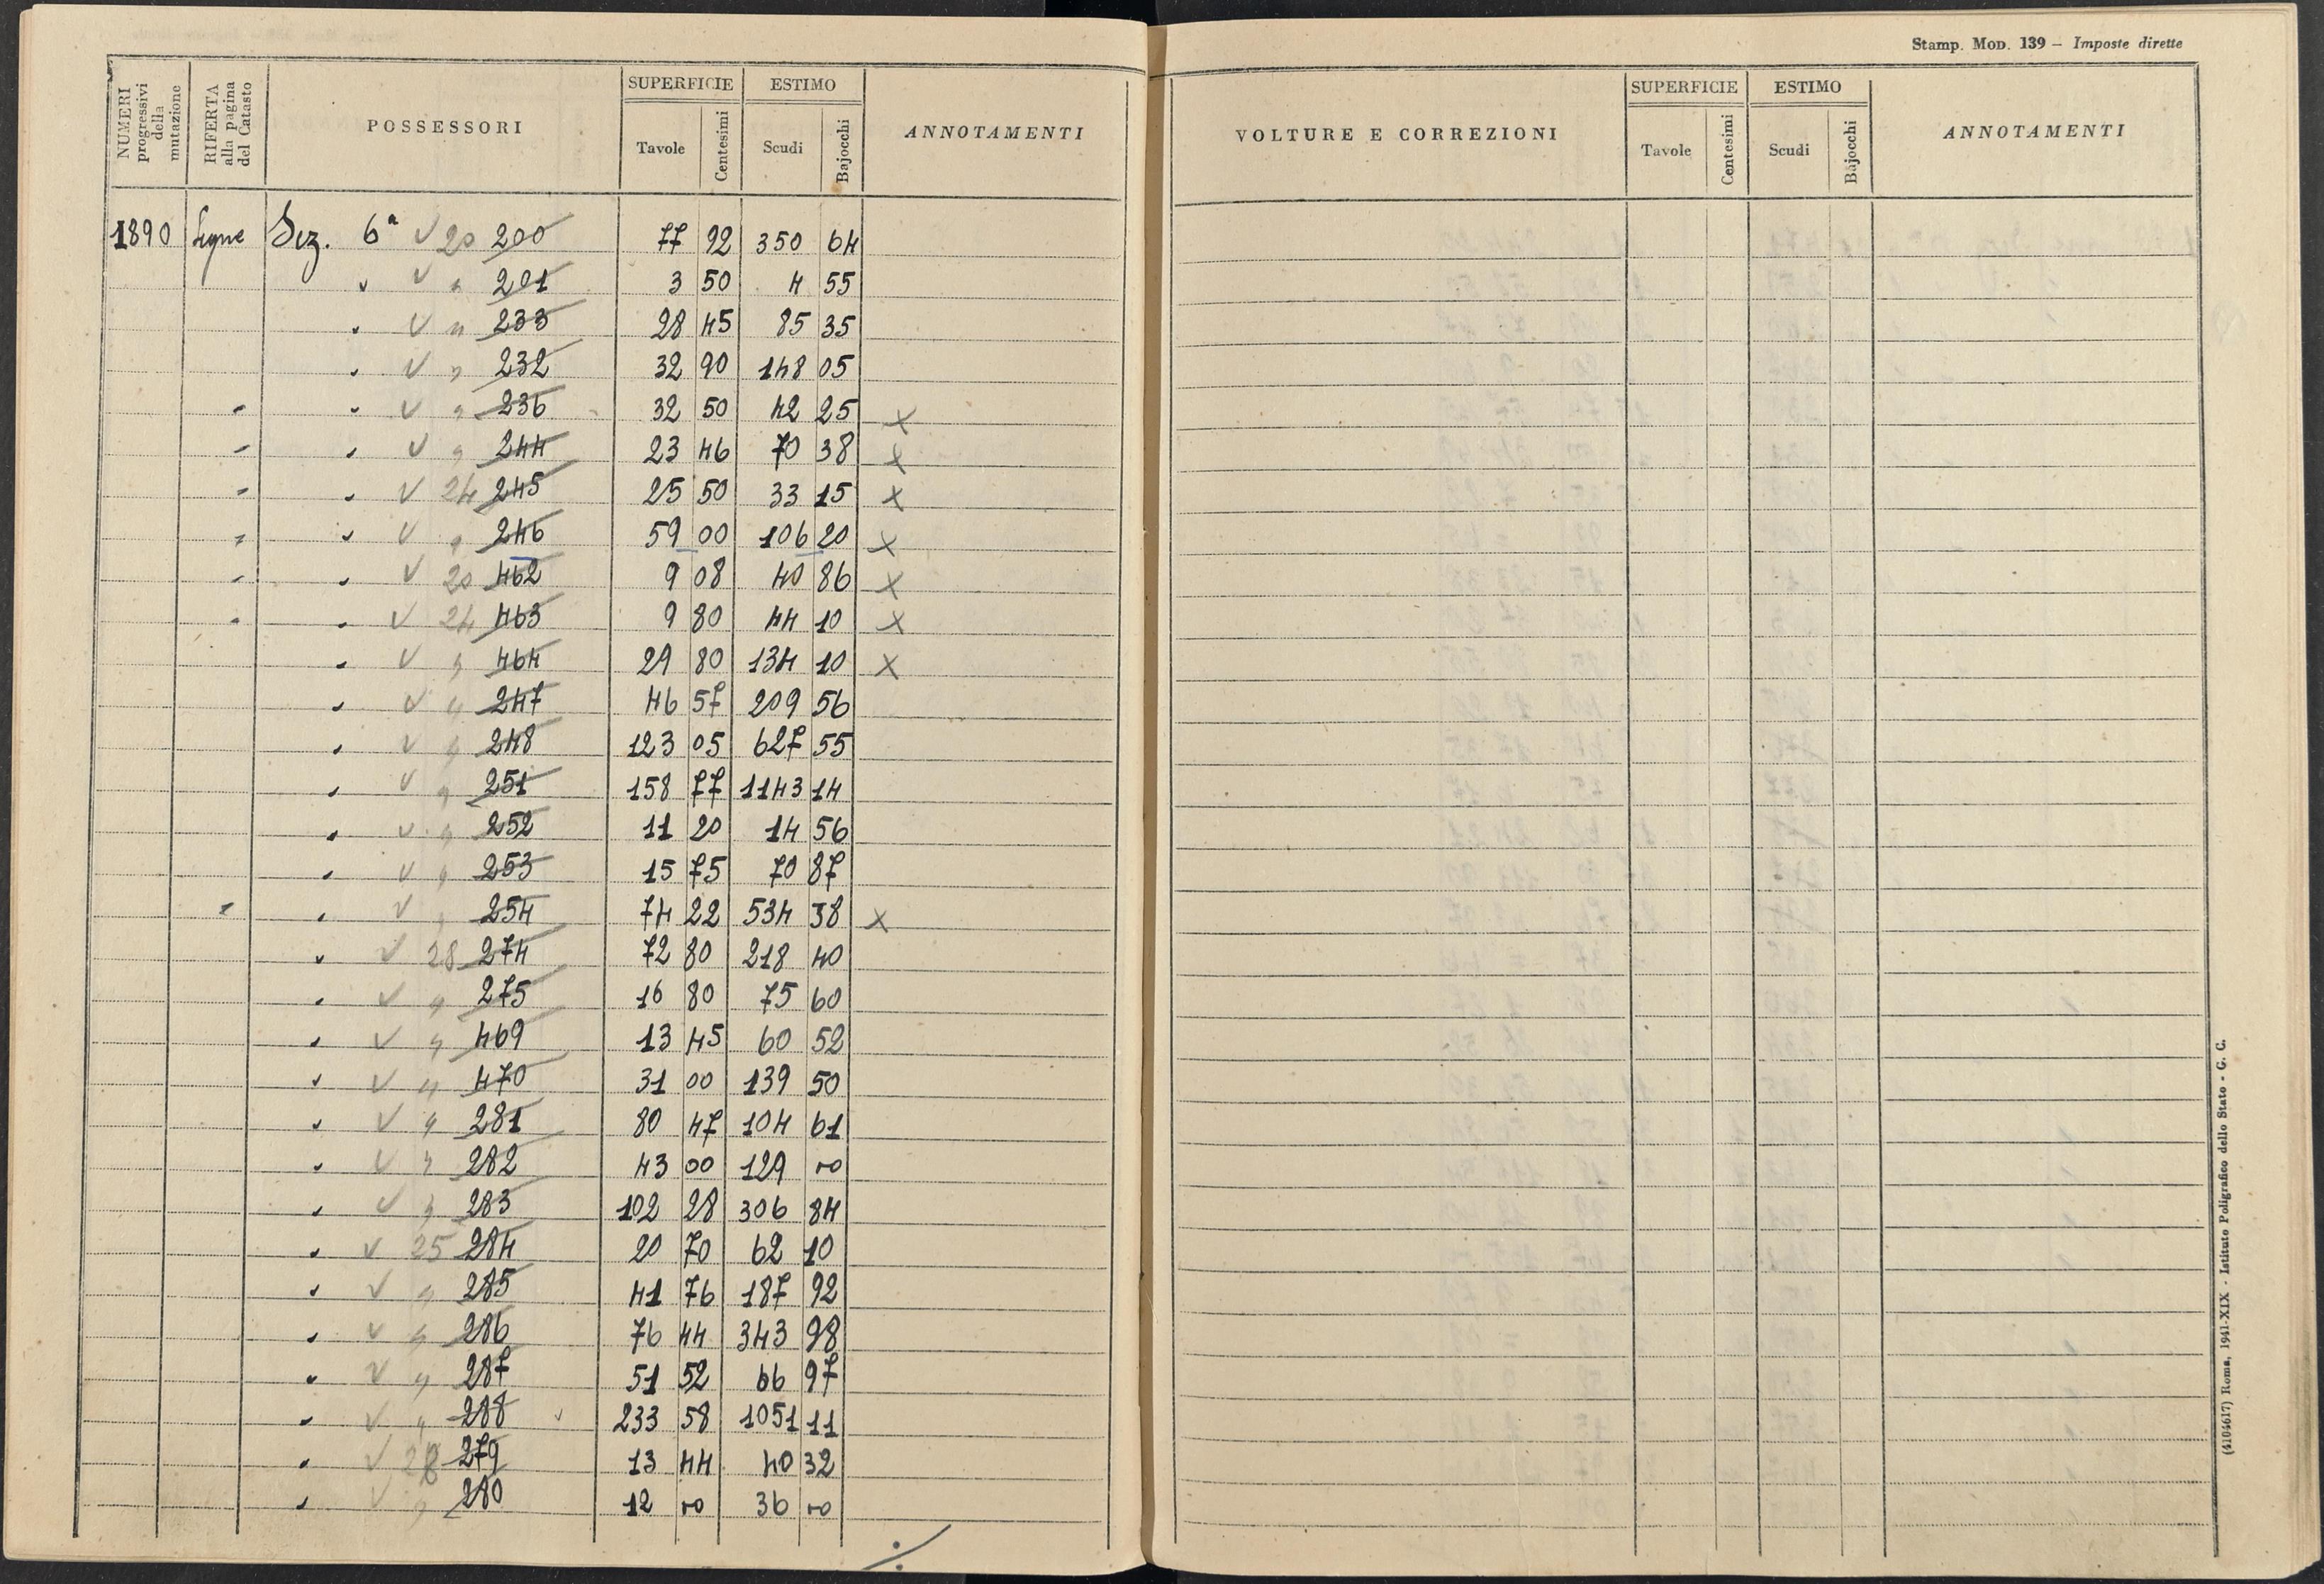 NUMERI progressivi della mutazione
RIFERTA alla pagina del Catasto
POSSESSORI
SUPERFICIE
Tavole
Centesimi
ESTIMO
Scudi
Bajocchi
ANNOTAMENTI
1890 Segue Sez. 6ª V 20 200 77 92 350 64
" V " 201 3 50 4 55
" V " 233 28 45 85 35
" V " 232 32 90 148 05
" " V " 236 32 50 42 25 X
" " V " 244 23 46 70 38 X
" " V 24 245 25 50 33 15 X
" " V " 246 59 00 106 20 X
" " V 20 462 9 08 40 86 X
" " V 24 463 9 80 44 10 X
" V " 464 29 80 134 10 X
" V " 247 46 57 209 56
" V " 248 123 05 627 55
" V " 251 158 77 1143 14
" V " 252 11 20 14 56
" V " 253 15 75 70 87
" " V " 254 74 22 534 38 X
" V 28 274 72 80 218 40
" V " 275 16 80 75 60
" V " 469 13 45 60 52
" V " 470 31 00 139 50
" V " 281 80 47 104 61
" V " 282 43 00 129 00
" V " 283 102 28 306 84
" V 25 284 20 70 62 10
" V " 285 41 76 187 92
" V " 286 76 44 343 98
" V " 287 51 52 66 97
" V " 288 V 233 58 1051 11
" V 28 279 13 44 40 32
" V " 280 12 00 36 00
Stamp. Mod. 139 – Imposte dirette
VOLTURE E CORREZIONI
SUPERFICIE
Tavole
Centesimi
ESTIMO
Scudi
Bajocchi
ANNOTAMENTI
(4104617) Roma, 1941-XIX - Istituto Poligrafico dello Stato - G. C.